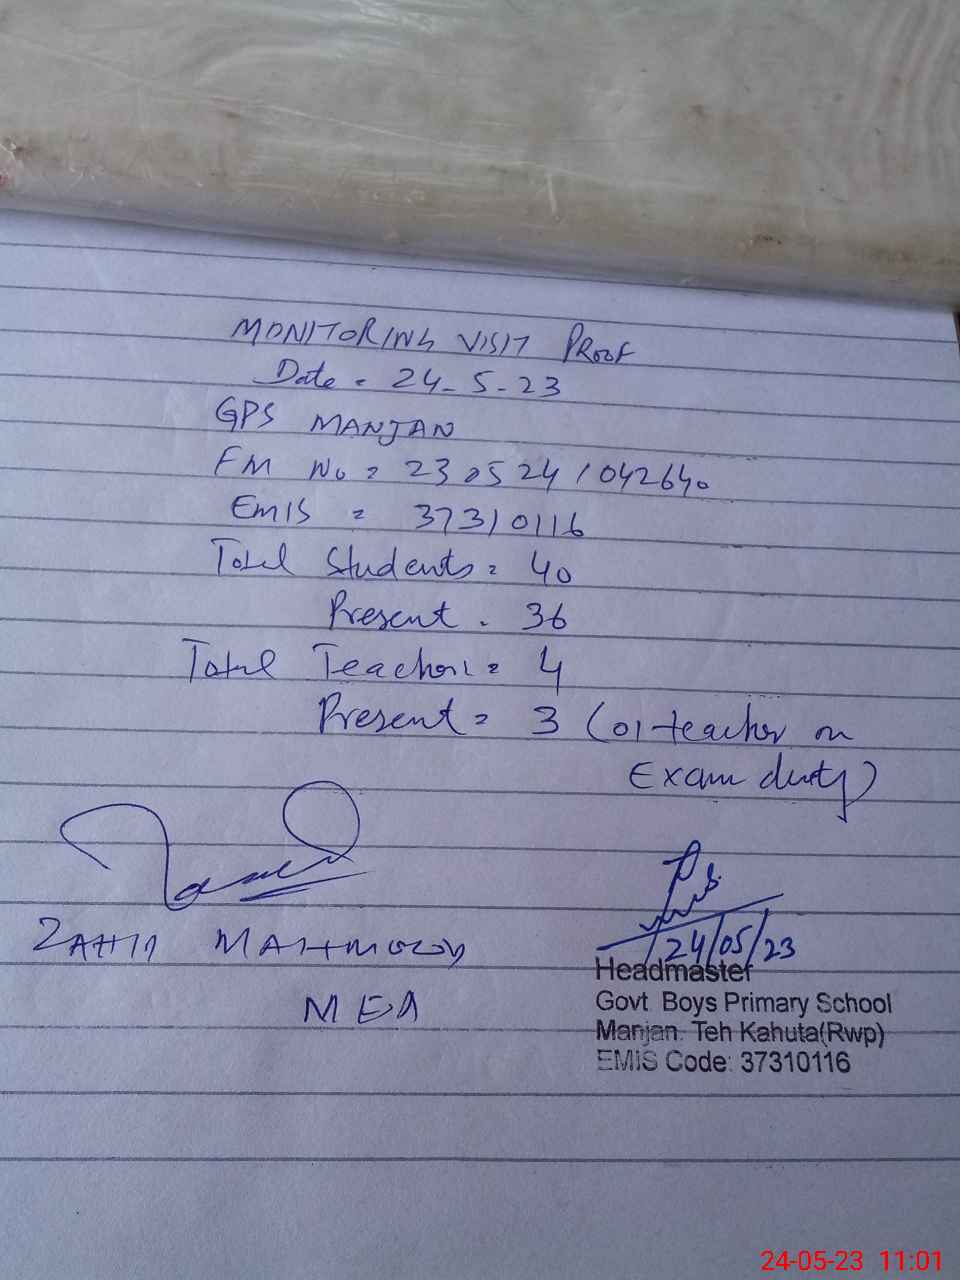 MONITORING VISIT PROOF
Date = 24-5-23
GPS MANJAN
FM No = 2305241042640
EMIS = 37310116
Total Students = 40
Present - 36
Total Teachers = 4
Present = 3 (01 teacher on
Exam duty)
ZAHID MAHMOOD
MEA
24/05/23
Headmaster
Govt. Boys Primary School
Manjan. Teh Kahuta(Rwp)
EMIS Code: 37310116
24-05-23 11:01